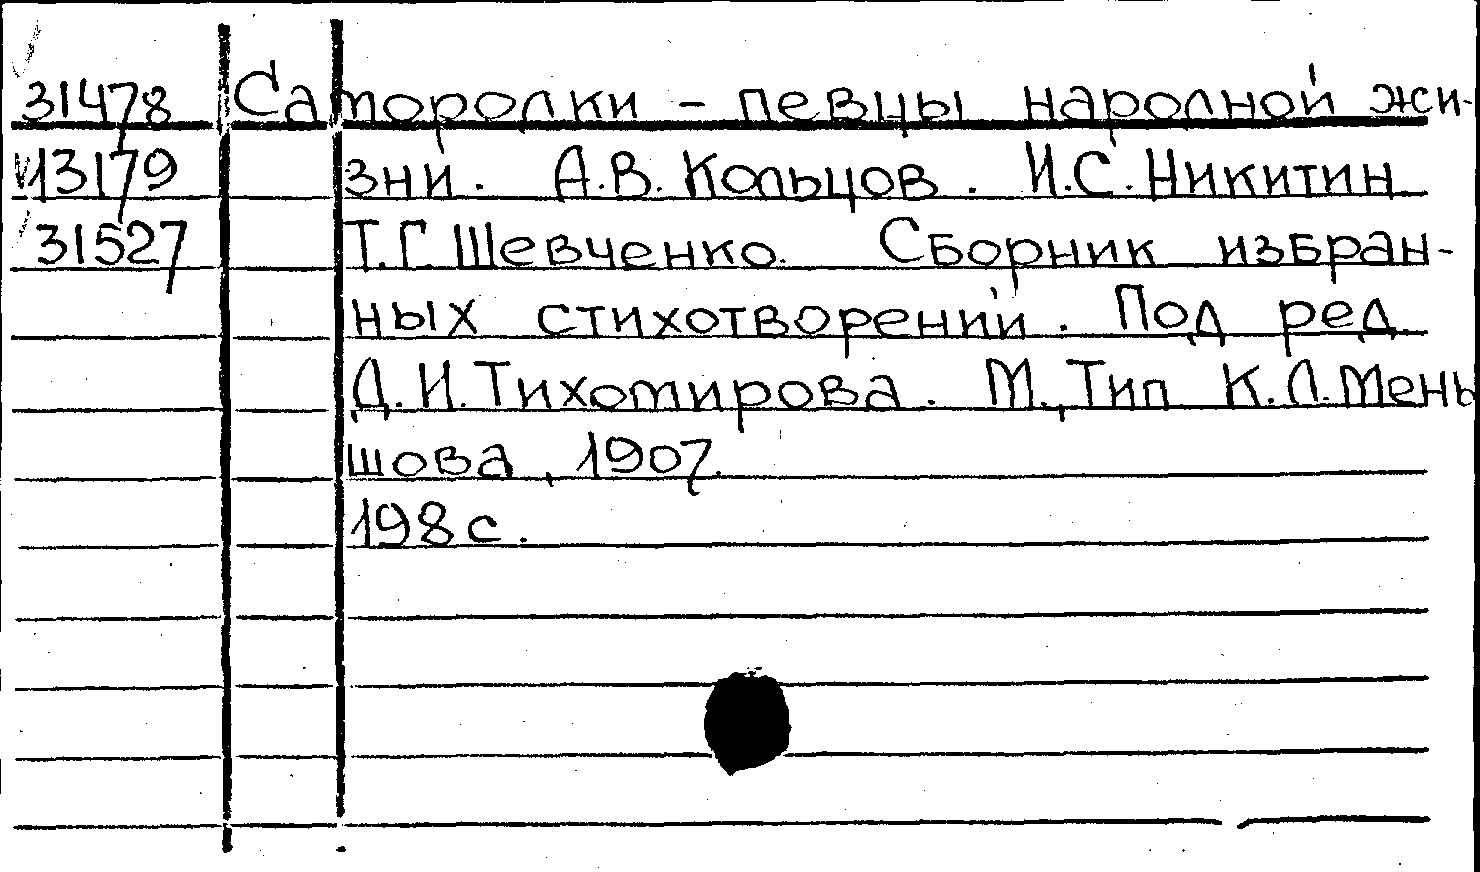 31478 Саmородки - певцы народной жи-
13179 зни. А.В. Кольцов. И.С. Никитин
31527 Т.Г. Шевченко. Сборник избран-
ных стихотворений. Под ред.
Д.И. Тихомирова. М., Тип К.Л. Мень
шова, 1907.
198 с.